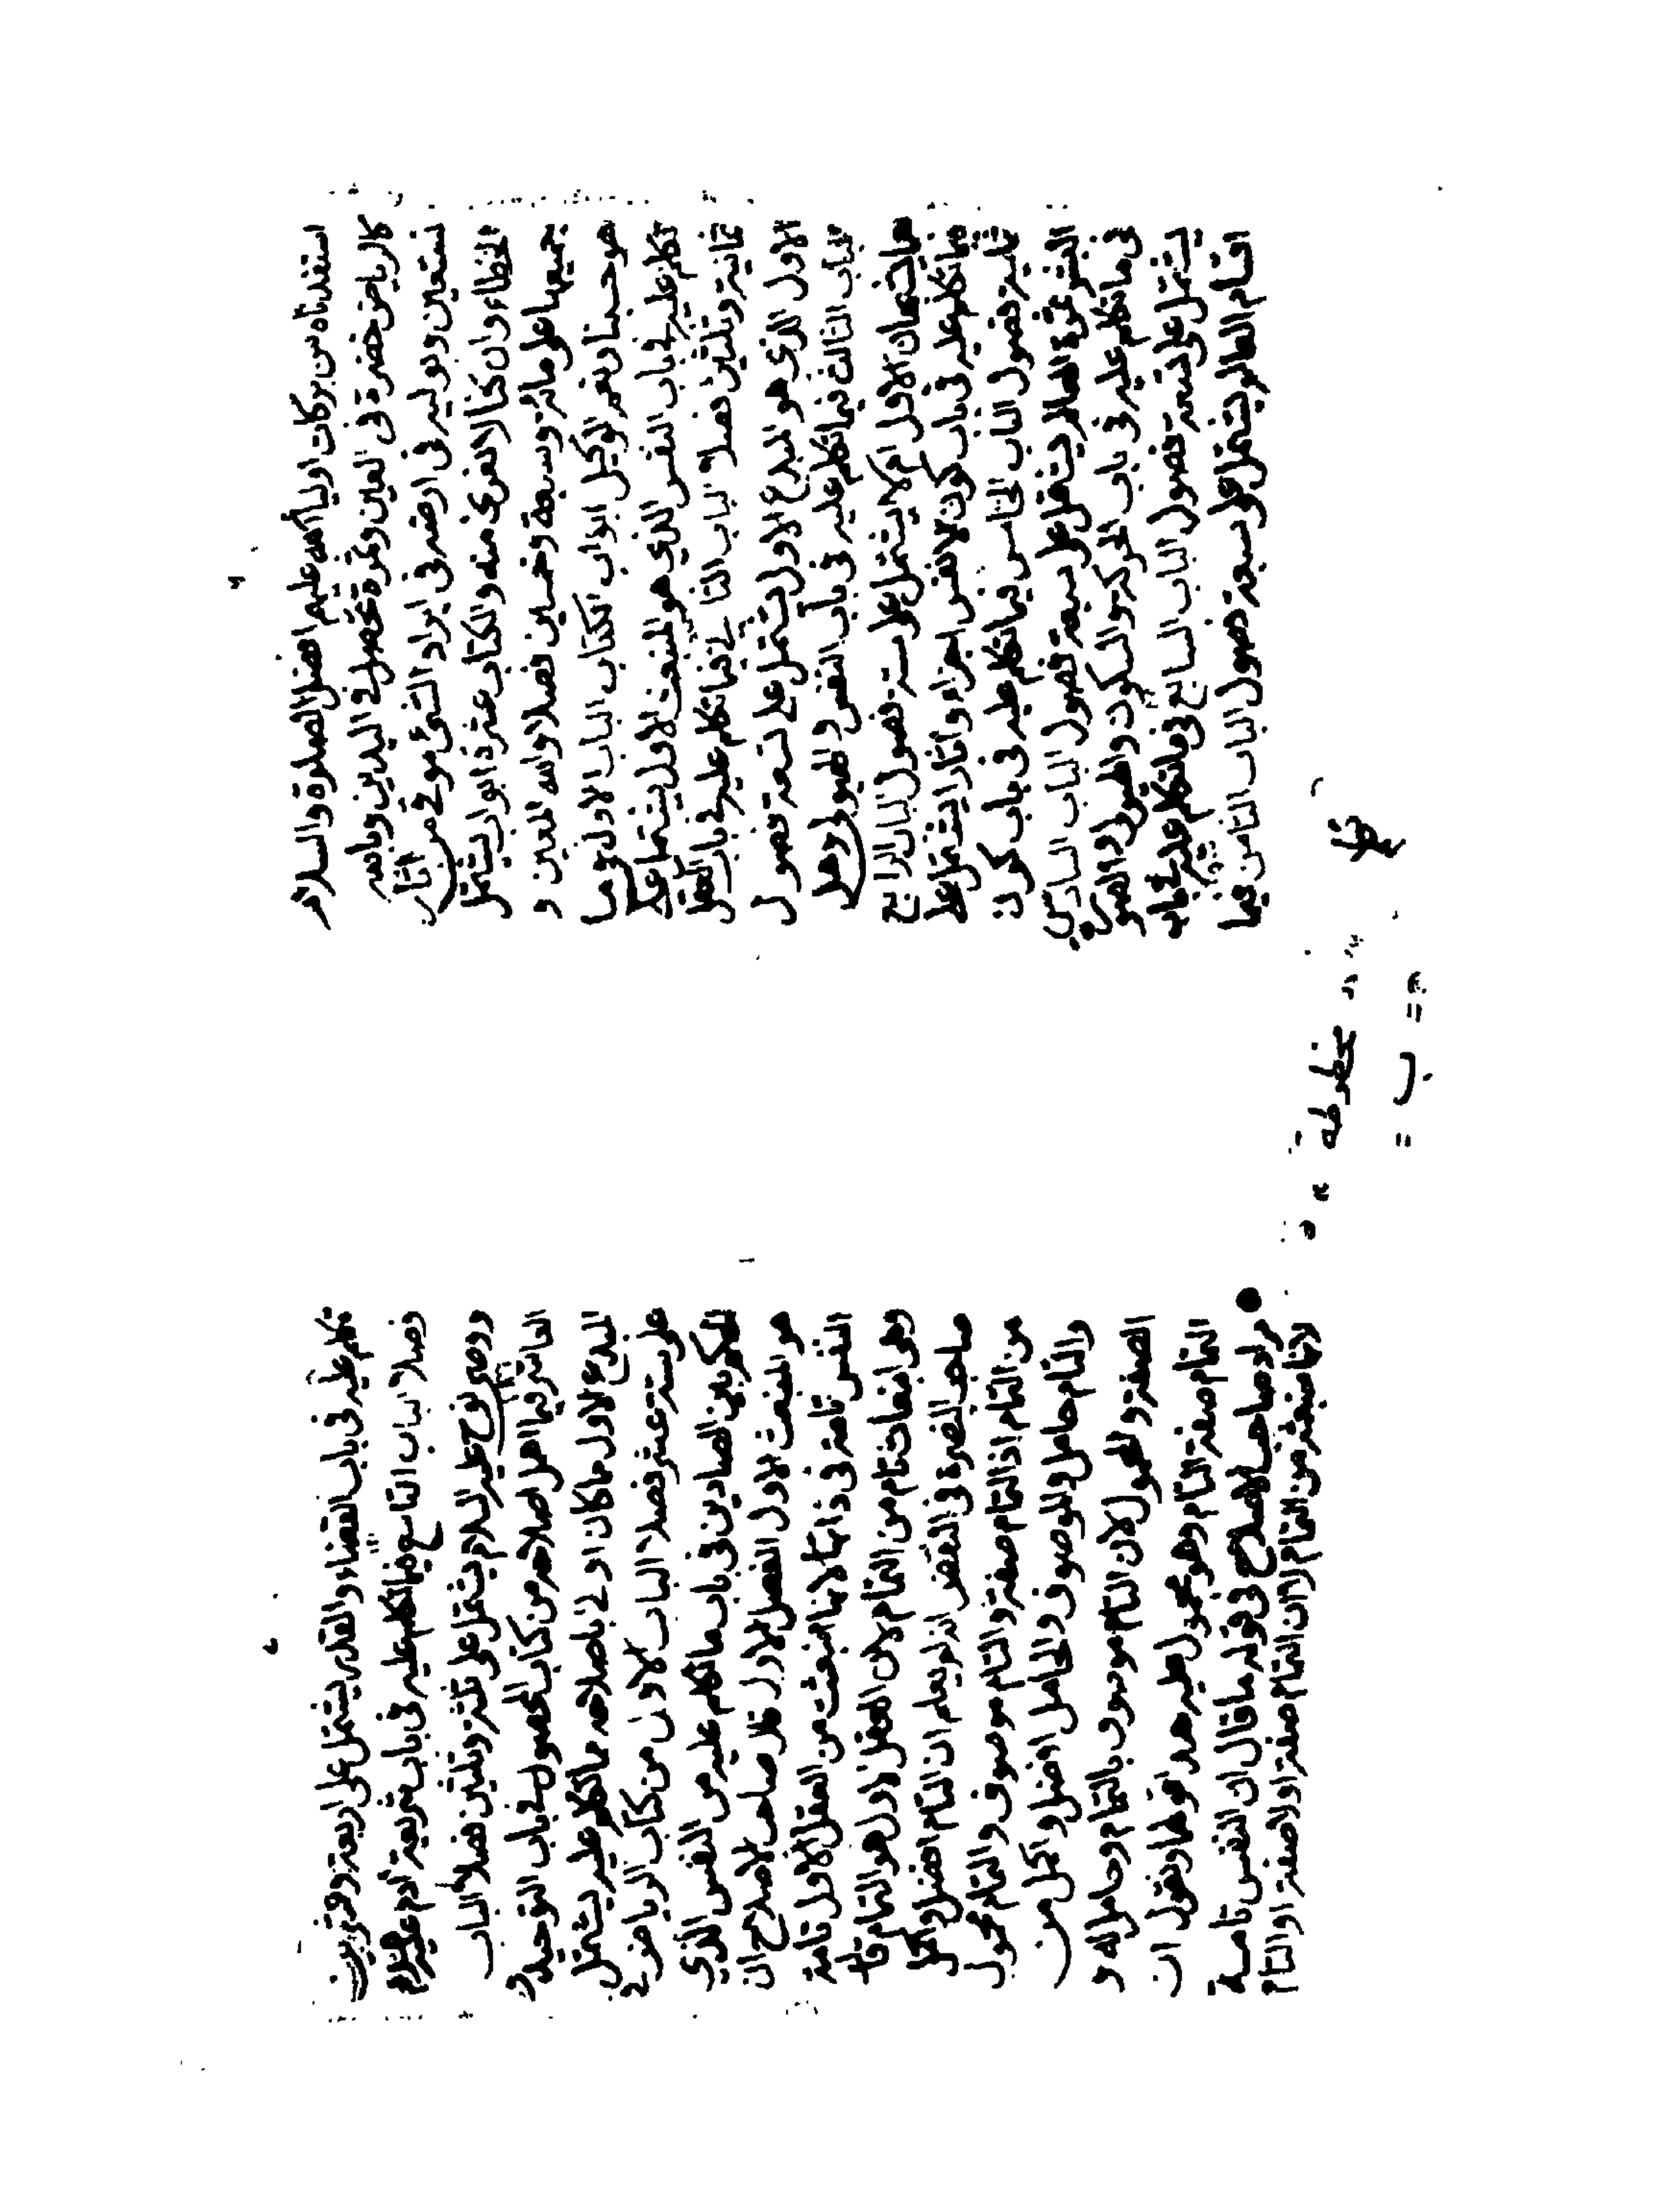 استفدناه من بركات اوليا الله عليهم افضل الصلوة والسلام
كالرياض خضرة فى العين وثمرة تحصل فى اليدين وبالله
نستعين وبوليه فى ارضه فى ايراد الشئ موفى من اثار
الخطاء وان كنا لا نعرى منه والكتاب عشرة ابواب يشتمل
جميعها على مائة وسبعة وخمسين فصلا والله المعين و
هو حسبنا ونعم الوكيل ابواب الكتاب الباب الاول فى ما
تكلم عليه فى باب النفس الذى هو المنبعث الاول يشتمل على
ثمانية وثلثين فصلا الباب الثانى فيما تكلم عليه فى باب العقل
الاول الذى هو المبدع الاول يشتمل على تسعة فصول
الباب الثالث فيما تكلم عليه فى باب النفس والهيولى وهل
هما الاول ام لا يشتمل على ستة فصول الباب الرابع
فيما تكلم عليه فى باب كون الانفس اجزاء واثارا يشتمل على
ثلثة فصول الباب الخامس فيما تكلم عليه فى باب كون
البشر ثمرة العالم يشتمل على سبعة فصول الباب السادس
فى ما تكلم عليه فى باب الحركة والسكون والهيولى والصورة
يشتمل على تسعة فصول الباب السابع فى ما تكلم عليه فى باب
اقسام العالم يشتمل على سبعة فصول الباب الثامن فيما
مخطوطة
= ب =
تكلم عليه فى باب القضاء والقدر يشتمل على اربعة وعشرين
فصلا الباب التاسع فيما تكلم عليه فى باب شريعة ادم عليه السلام
ووصى نوح عليه السلام يشتمل على ثلثة وثلثين فصلا الباب
العاشر فيما اهمل اصلاحه من كتاب المحصول فى باب التوحيد و
المبدع الاول ما كان اولى باصلاحه مما تكلم عليه يشتمل
على ستة عشر فصلا الباب الاول من كتاب الرياض فى
الحكم بين الصادين فى باب ما تكلم عليه من النفس الذى
هو المنبعث الاول الفصل الاول قال صاحب الاصلاح ان
النفس تامة فى ذاتها لانها انبعثت من العقل الاول تامة
وهو انبعاث تام من التمام لان العقل الاول هو التمام قال
صاحب النصرة فى النقض انه لم يعلم ان التام افضل واكمل
من التمام اذ التمام صفة والتام موصوف والتمام محمول
والتام حامل والموصوف والحامل افضل واكمل من
الصفة والمحمول لان التام موصوف بالتمام وحامل له و
التمام صفة التام وهو محمول عليه هذا قولهما ونقول ان
مراد صاحب الاصلاح فى قوله ما قال ان النفس تامة
وانها منبعثة من التمام لا ان التمام صفة او لا صفة او التام